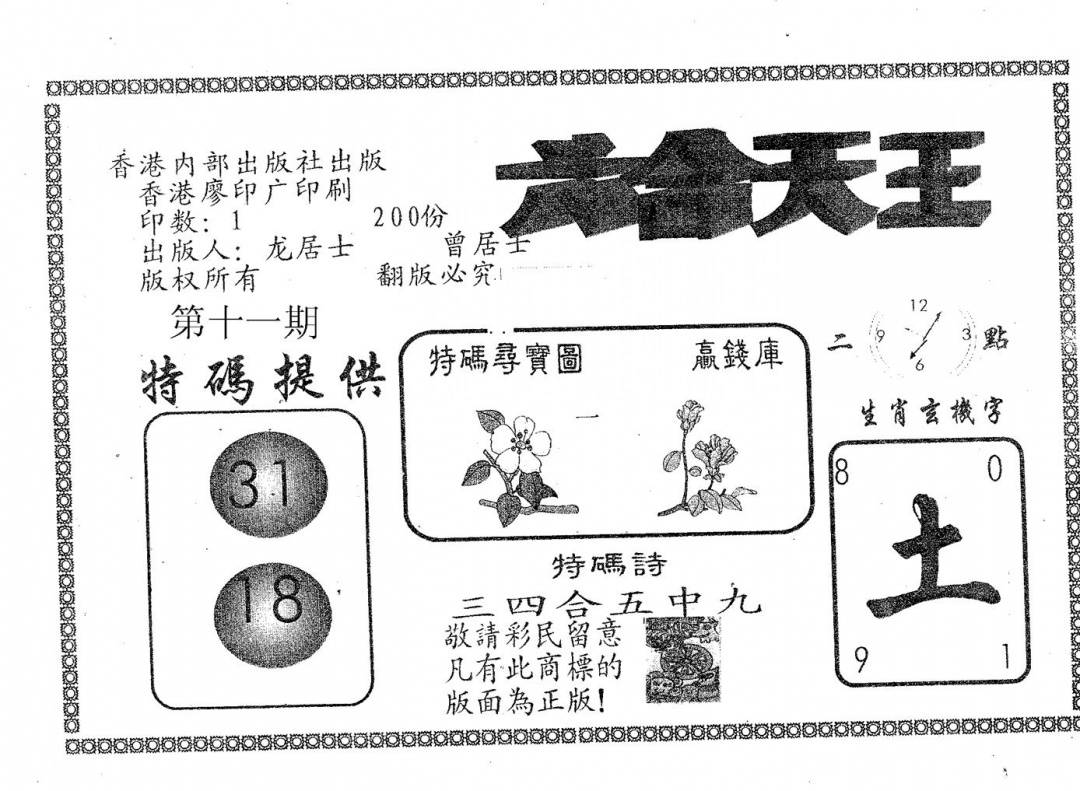 六合天王
香港内部出版社出版
香港廖印广印刷
印数: 1 200份
出版人: 龙居士 曾居士
版权所有 翻版必究
第十一期
特碼提供
31
18
特碼尋寶圖 贏錢庫
一
二 12 3 6 9 點
生肖玄機字
8 0
土
9 1
特碼詩
三四合五中九
敬請彩民留意
凡有此商標的
版面為正版!